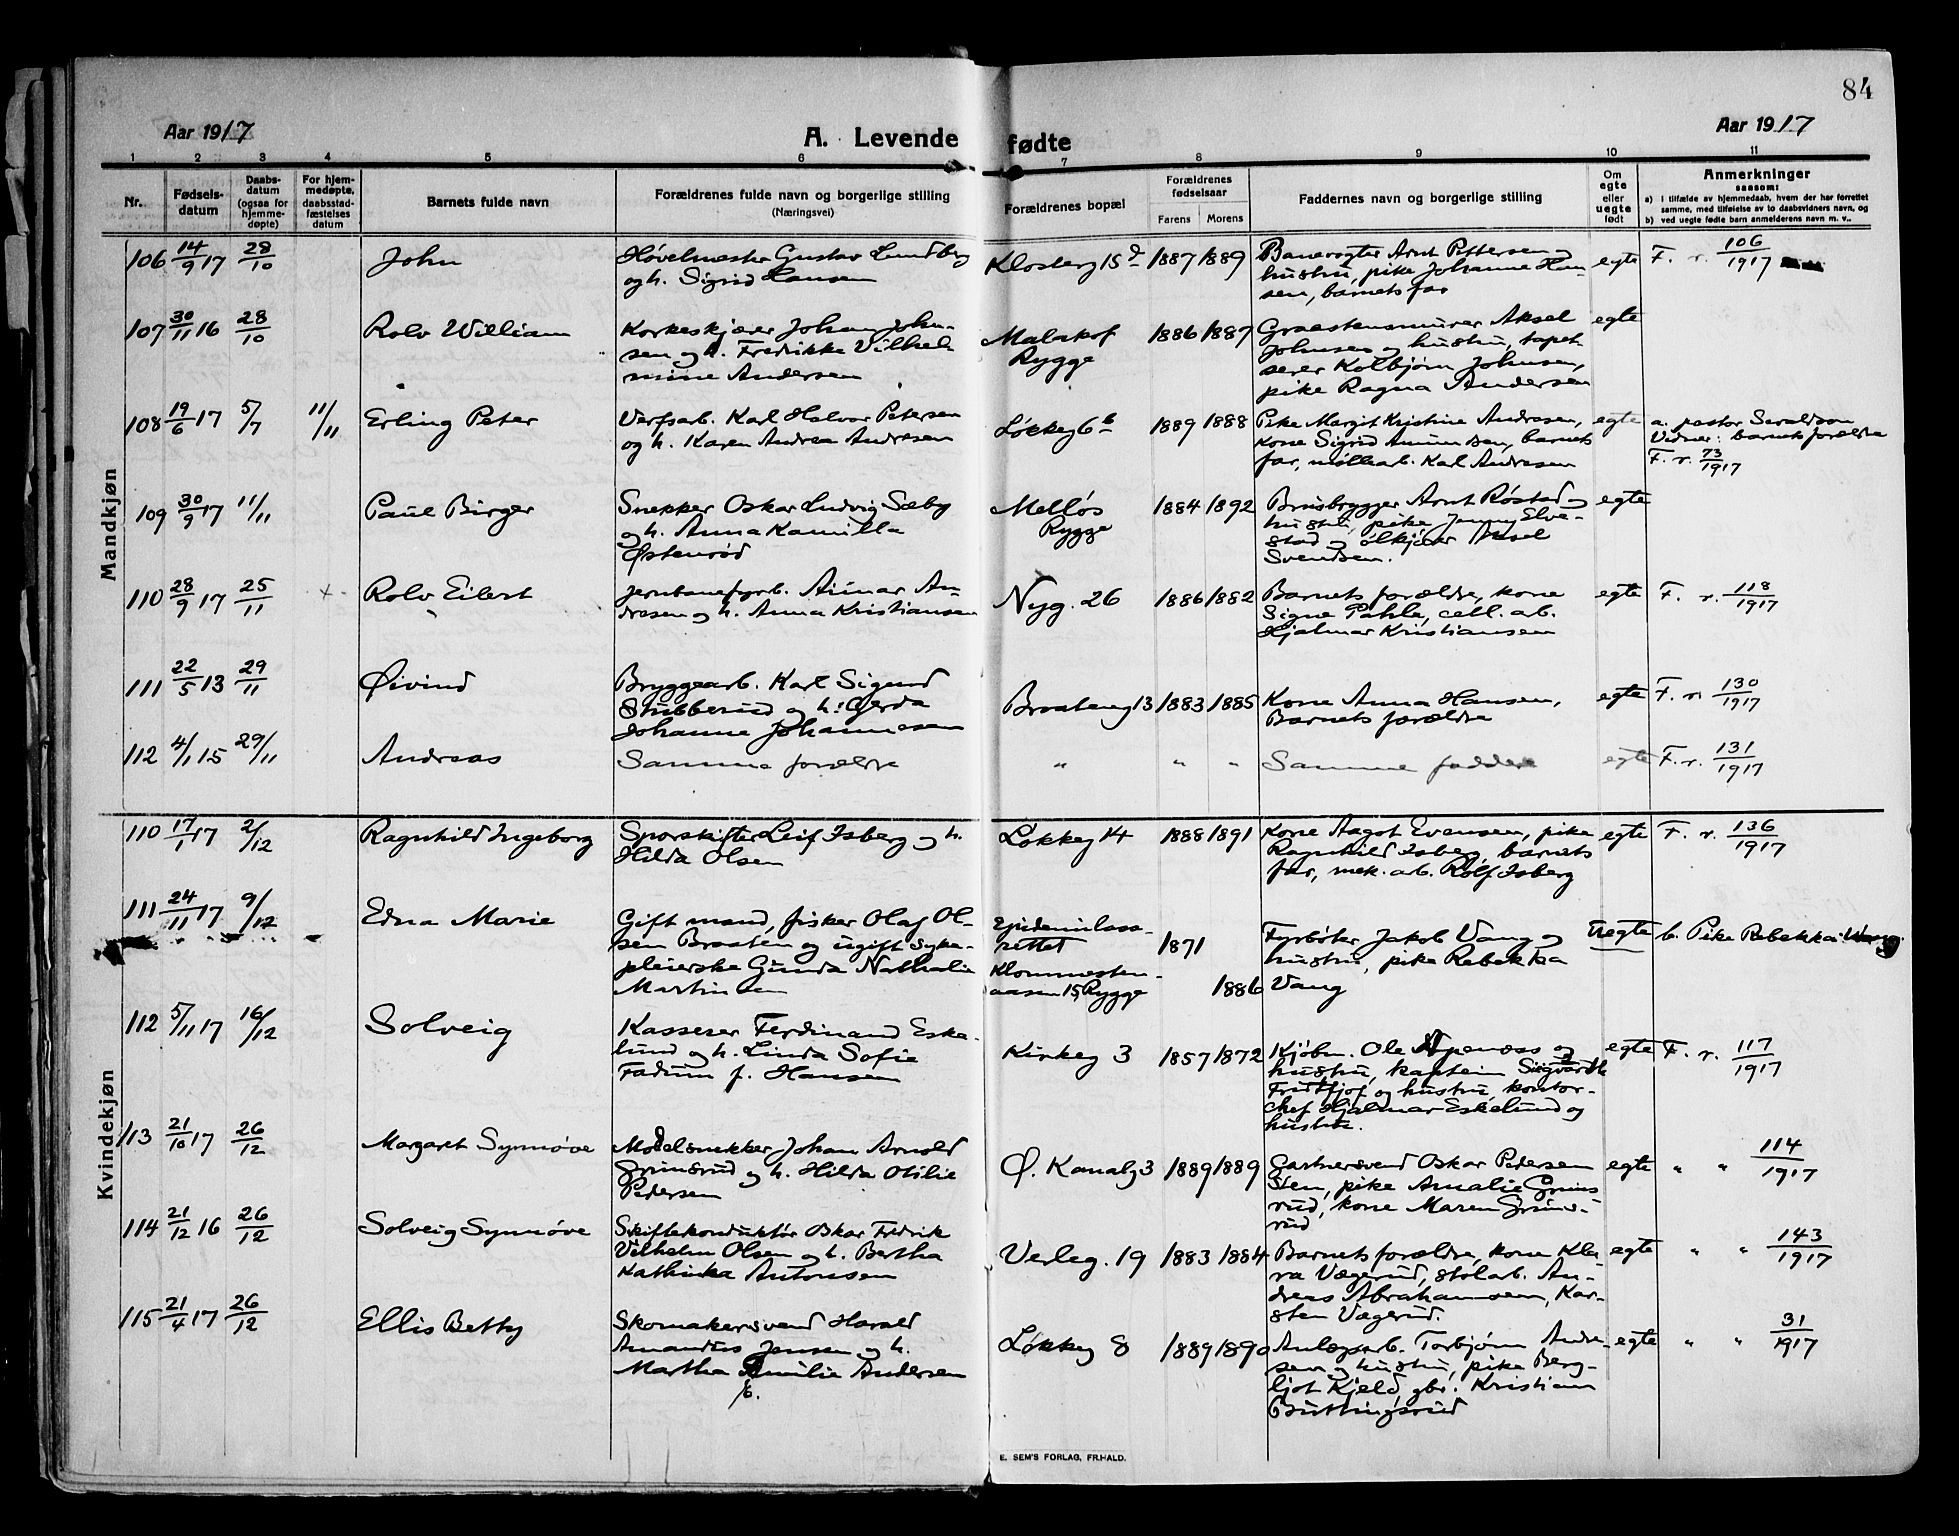 84
Aar 1917
A. Levende fødte
Aar 1917
1 2 3 4 5 6 7 8 9 10 11
Nr.
Fødsels-
datum
Daabs-
datum
(ogsaa for
hjemme-
døpte)
For hjem-
medøpte,
daabsstad-
fæstelses
datum
Barnets fulde navn
Forældrenes fulde navn og borgerlige stilling
(Næringsvei)
Forældrenes bopæl
Forældrenes
fødselsaar
Farens Morens
Faddernes navn og borgerlige stilling
Om
egte
eller
uegte
født
Anmerkninger
saasom:
a) i tilfælde av hjemmedaab, hvem der har forrettet
samme, med tilføielse av to daabsvidners navn, og
b) ved uegte fødte barn anmelderens navn m. v..
Mandkjøn
106 14/9 17 28/10 John
Høvelmester Gustav Lundberg
og h. Sigrid Hansen
Klosterg 15 d 1887 1889
Banevogter Arnt Pettersen og
hustru, pike Johanne Han-
sen, barnets far
egte F. r. 106/1917
107 30/11 16 28/10 Rolv William
Korkeskjærer Johan John-
sen og h. Fredrikke Vilhel-
mine Andersen
Malakof
Rygge
1886 1887
Graastensmurer Aksel
Johnsen og hustru, tapet-
serer Kolbjørn Johnsen,
pike Ragna Andersen
egte
108 19/6 17 5/7 11/11 Erling Peter
Verfsarb. Karl Halvor Petersen
og h. Karen Andrea Andresen
Løkkeg 6 b 1889 1888
Pike Margit Kristine Andresen,
kone Sigrid Amundsen, barnets
far, møllearb. Karl Andresen
egte
a. pastor Seraldson
Vidner: barnets forældre
F. r. 73/1917
109 30/9 17 11/11 Paul Birger
Snekker Oskar Ludvig Sæby
og h. Anna Kamilla
Østenrød
Melløs
Rygge
1884 1892
Brusbrygger Arnt Røstad og
hustru, pike Jenny Elve-
stad og ølkjører Aksel
Svendsen.
egte
110 28/9 17 25/11 Rolv Eilert
Jernbanefyrb. Aimar An-
dresen og h. Anna Kristiansen
Nyg. 26 1886 1882
Barnets forældre, kone
Signe Pahle, cell. arb.
Hjalmar Kristiansen
egte F. r. 118/1917
111 22/5 13 29/11 Øivind
Bryggearb. Karl Sigurd
Stubberud og h. Gerda
Johanne Johannesen
Braateng 13 1883 1885
Kone Anna Hansen,
Barnets forældre
egte F. r. 130/1917
112 4/1 15 29/11 Andreas
Samme forældre
" " "
Samme faddere
egte F. r. 131/1917
Kvindekjøn
110 17/1 17 2/12 Ragnhild Ingeborg
Sporskifter Leif Isberg og h.
Hilda Olsen
Løkkeg 14 1888 1891
Kone Aagot Evensen, pike
Ragnhild Isberg, barnets
far, mek. arb. Rolf Isberg
egte F. r. 136/1917
111 24/11 17 9/12 Edna Marie
Gift mand, fisker Olaf Ol-
sen Braaten og ugift syke-
pleierske Gunda Nathalie
Martinsen
Epidemilasa-
rettet
Klommesten-
aasen 15, Rygge
1871
1886
Fyrbøter Jakob Vang og
hustru, pike Rebekka
Vang
uegte b. Pike Rebekka Vang.
112 5/11 17 16/12 Solveig
Kasserer Ferdinand Eske-
lund og h. Linda Sofie
Fadum f. Hansen
Kirkeg 3 1857 1872
Kjøbm. Ole Apenæss og
hustru, kaptein Sigvardt
Fridtjof og hustru, kontor-
chef Hjalmar Eskelund og
hustru.
egte F. r. 117/1917
113 21/10 17 26/12 Margaret Synnøve
Modelsnekker Johan Arnold
Grimsrud og h. Hilda Otilie
Pedersen
Ø. Kanalg 3 1889 1889
Gartnersvend Oskar Pedersen
Sten, pike Amalie Grims-
rud, kone Maren Grims-
rud
egte " " 114/1917
114 21/12 16 26/12 Solveig Synnøve
Skiftekonduktør Oskar Fredrik
Vilhelm Olsen og h. Bertha
Kathinka Antonsen
Verleg. 19 1883 1884
Barnets forældre, kone Kla-
ra Vægerud, stolarb. An-
dreas Abrahamsen, Kar-
sten Vægerud.
egte " " 143/1917
115 21/4 17 26/12 Ellis Betty
Skomakersvend Harald
Amandus Jensen og h.
Martha Emilie Andersen
Løkkeg 8 1889 1890
Anlægsarb. Torbjørn Andre-
sen og hustru, pike Berg-
ljot Kjeld, gbr. Kristian
Buttingsrud
egte " " 31/1917
E. SEM'S FORLAG, FR.HALD.